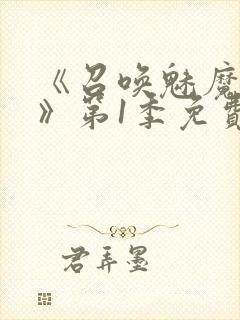 《召唤魅魔
》第1季免費
君弄墨